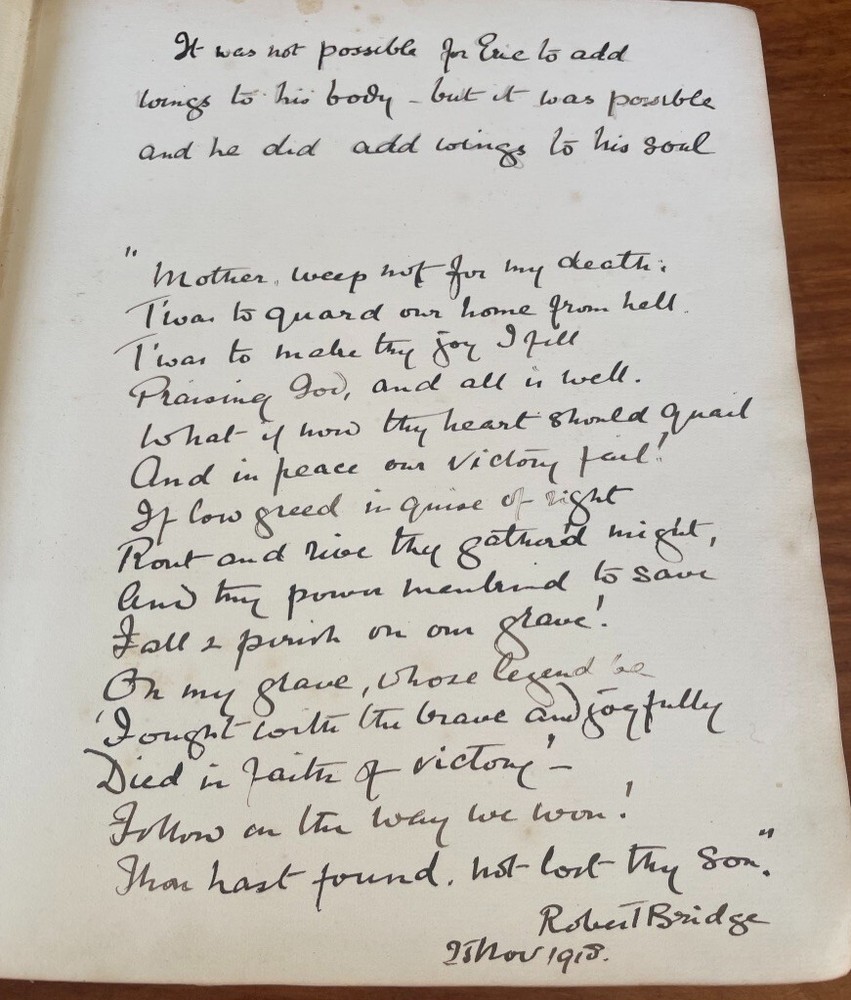 It was not possible for Eric to add
wings to his body - but it was possible
and he did add wings to his soul
"Mother, weep not for my death:
T'was to guard our home from hell.
T'was to make thy joy I fell
Praising God, and all is well.
What if now thy heart should quail
And in peace our victory fail!
If low greed in guise of right
Rout and rive thy gather'd might,
And thy power mankind to save
Fall & perish on our grave!
On my grave, whose legend be
'Fought with the brave and joyfully
Died in faith of victory' -
Follow on the way we won!
Thou hast found, not lost thy son."
Robert Bridge
Nov 1918.